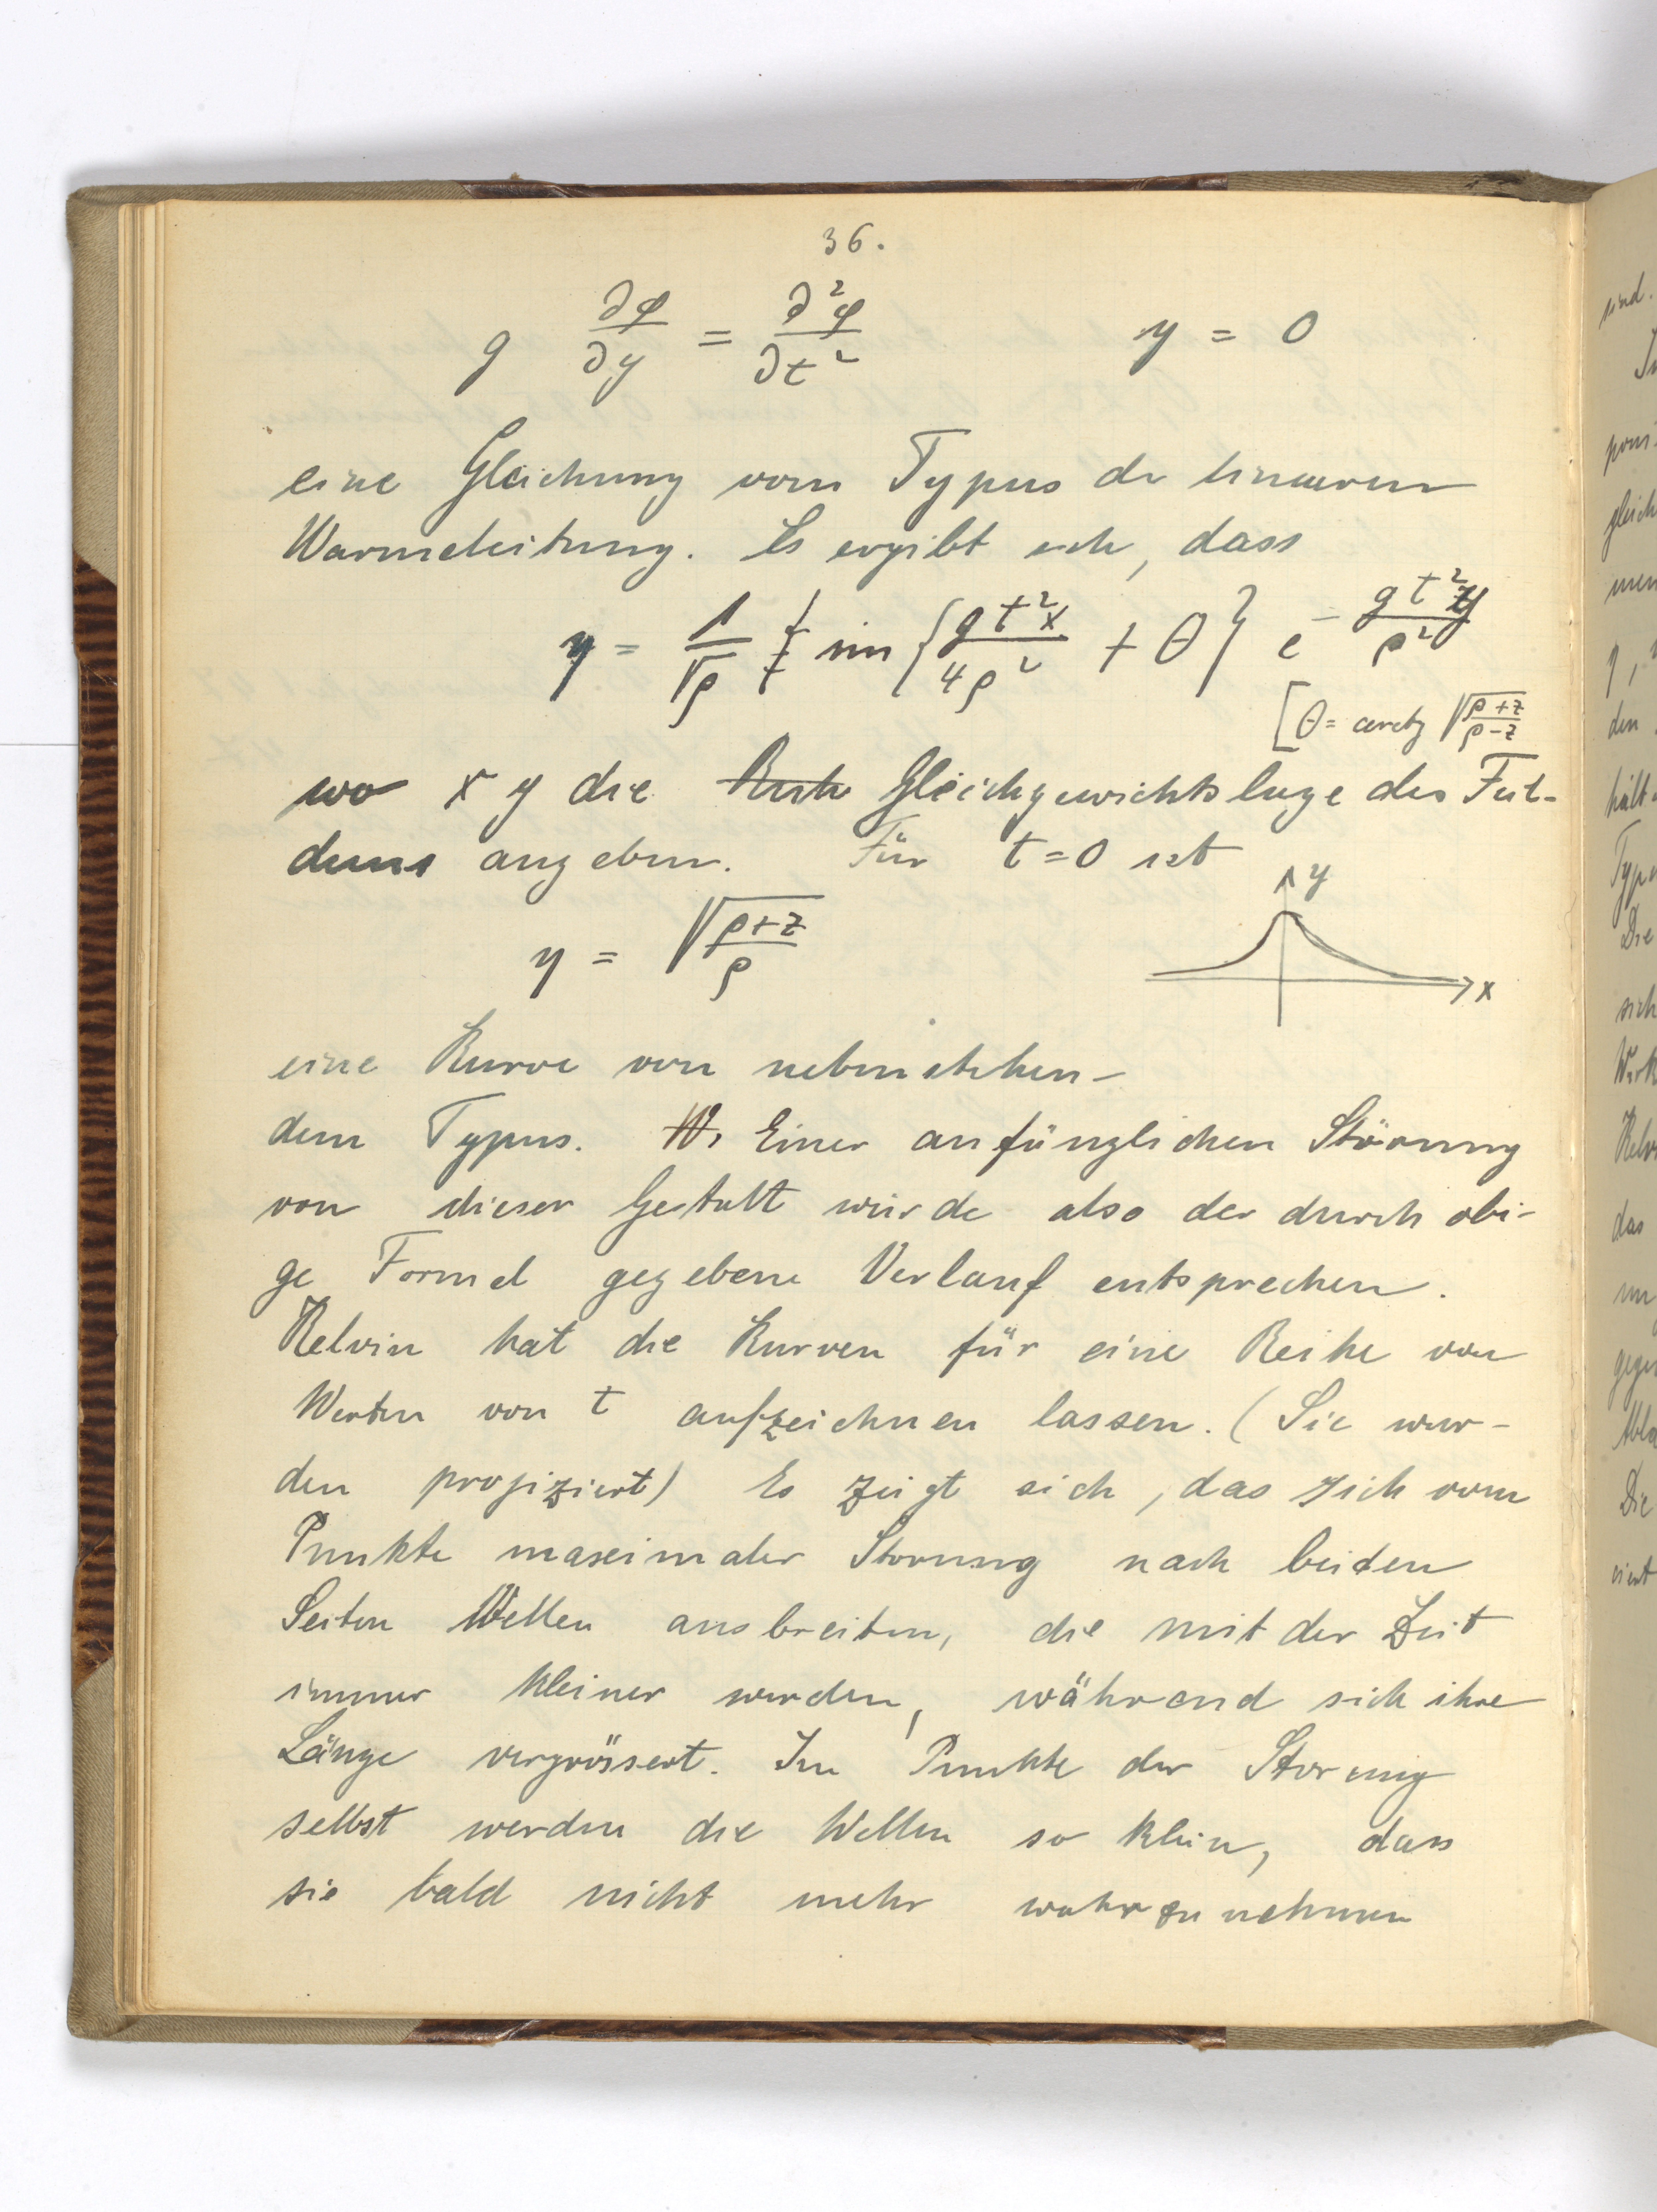 36.
g ∂φ/∂y = ∂²φ/∂t² y = 0
eine Gleichung vom Typus der linearen
Warmeleitung. Es ergibt sich, dass
y = 1/√ρ sin {gt²x/4ρ² + θ} e^(- gt²y/ρ²)
[θ = arctg √(ρ+z/ρ-z)
wo x y die Ruhe Gleichgewichtslage des
angeben. Für t=0 ist
y
η = √(ρ+z)/ρ
x
eine Kurve von nebenstehen-
dem Typus. W. Einer anfänglichen Störung
von dieser Gestalt würde also der durch obi-
ge Formel gegebene Verlauf entsprechen.
Kelvin hat die Kurven für eine Reihe von
Werten von t aufzeichnen lassen. (Sie wur-
den projiziert) Es zeigt sich, das sich vom
Punkte maximaler Storung nach beiden
Seiten Wellen ausbreiten, die mit der Zeit
immer kleiner werden, während sich ihre
Länge vergrössert. Im Punkte der Storung
selbst werden die Wellen so klein, dass
sie bald nicht mehr wahrzunehmen
sind.